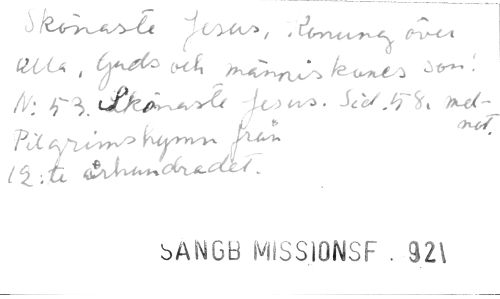 Skönaste Jesus, Konung över
alla, Guds och människones son!
N: 53. Skönaste Jesus. Sid. 58. med-
not.
Pilgrimshymn från
12:te århundradet.
SANGB MISSIONSF. 921